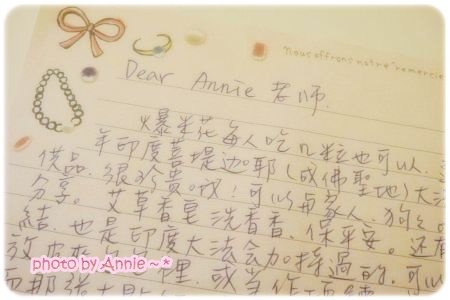 nous offrons notre remercie
Dear Annie 老师.
爆米花每人吃几粒也可以.
年印度菩堤迦耶(成佛聖地)大法
供品. 很珍贵哎! 可以再
分享。艾草香皂洗香香. 保平安。还有
結. 也是印度大法会加持過的. 可以
放
photo by Annie ~*
那張 裡. 或